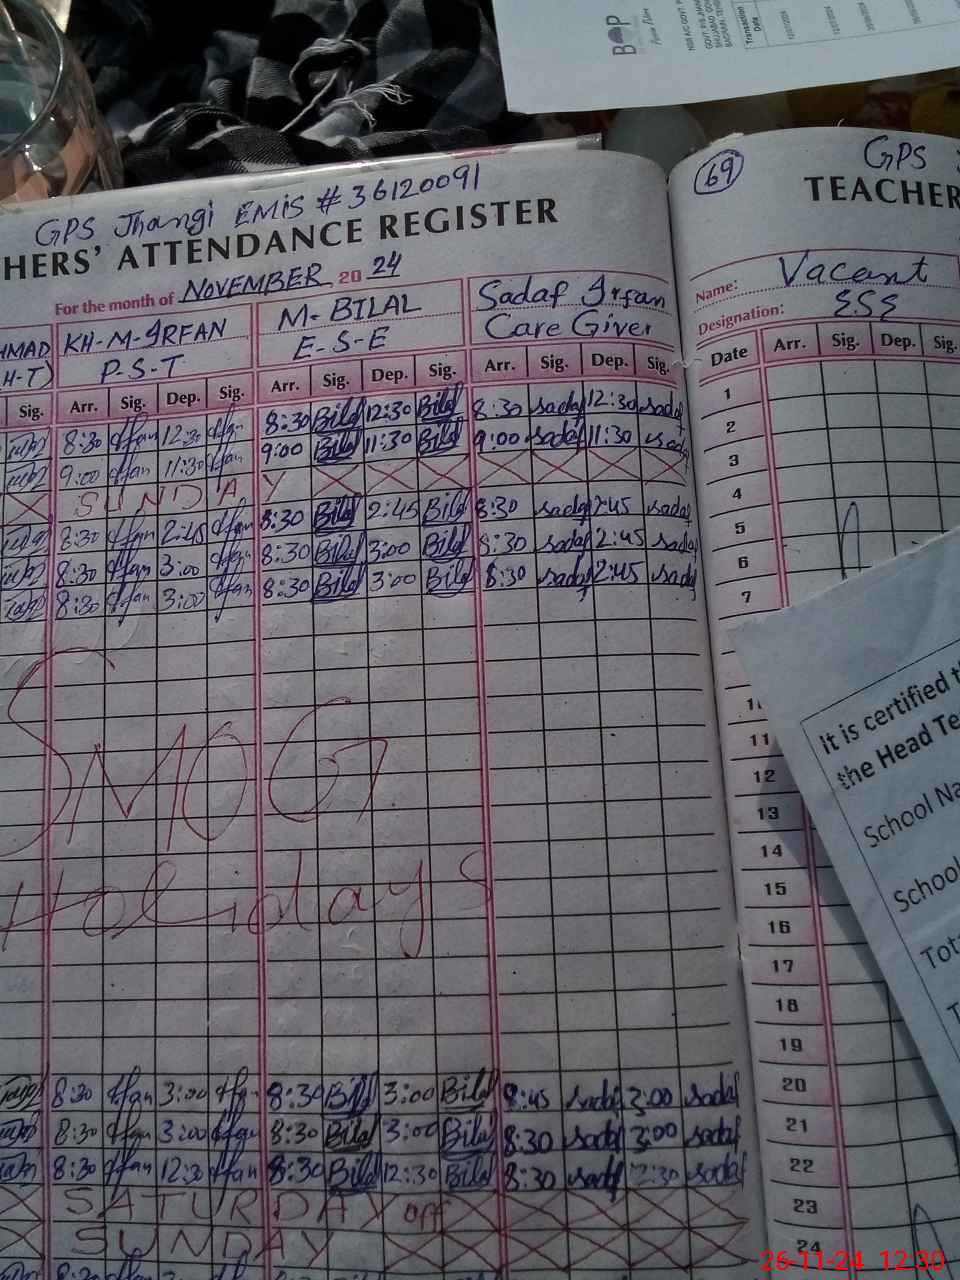 BOP
Transaction
Date
GPS Jhangi EMIS # 36120091
HERS' ATTENDANCE REGISTER
For the month of NOVEMBER 20 24
HMAD KH-M-IRFAN M- BILAL Sadaf Irfan
H-T) P-S-T E-S-E Care Giver
Sig. Arr. Sig. Dep. Sig. Arr. Sig. Dep. Sig. Arr. Sig. Dep. Sig.
8:30 Irfan 12:30 Irfan 8:30 Bilal 12:30 Bilal 8:30 sadaf 12:30 sadaf
9:00 Irfan 11:30 Irfan 9:00 Bilal 11:30 Bilal 9:00 sadaf 11:30 sadaf
SUNDAY
8:30 Irfan 2:45 Irfan 8:30 Bilal 2:45 Bilal 8:30 sadaf 2:45 sadaf
8:30 Irfan 3:00 Irfan 8:30 Bilal 3:00 Bilal 8:30 sadaf 2:45 sadaf
8:30 Irfan 3:00 Irfan 8:30 Bilal 3:00 Bilal 8:30 sadaf 2:45 sadaf
SMOG
Holidays
8:30 Irfan 3:00 Irfan 8:30 Bilal 3:00 Bilal 8:45 sadaf 3:00 sadaf
8:30 Irfan 3:00 Irfan 8:30 Bilal 3:00 Bilal 8:30 sadaf 3:00 sadaf
8:30 Irfan 12:30 Irfan 8:30 Bilal 12:30 Bilal 8:30 sadaf 12:30 sadaf
SATURDAY off
SUNDAY
69
GPS
TEACHER
Name: Vacant
Designation: ESE
Date Arr. Sig. Dep. Sig.
1
2
3
4
5
6
7
11
12
13
14
15
16
17
18
19
20
21
22
23
24
It is certified t
the Head Te
School Na
School
Tot
26-11-24 12:30